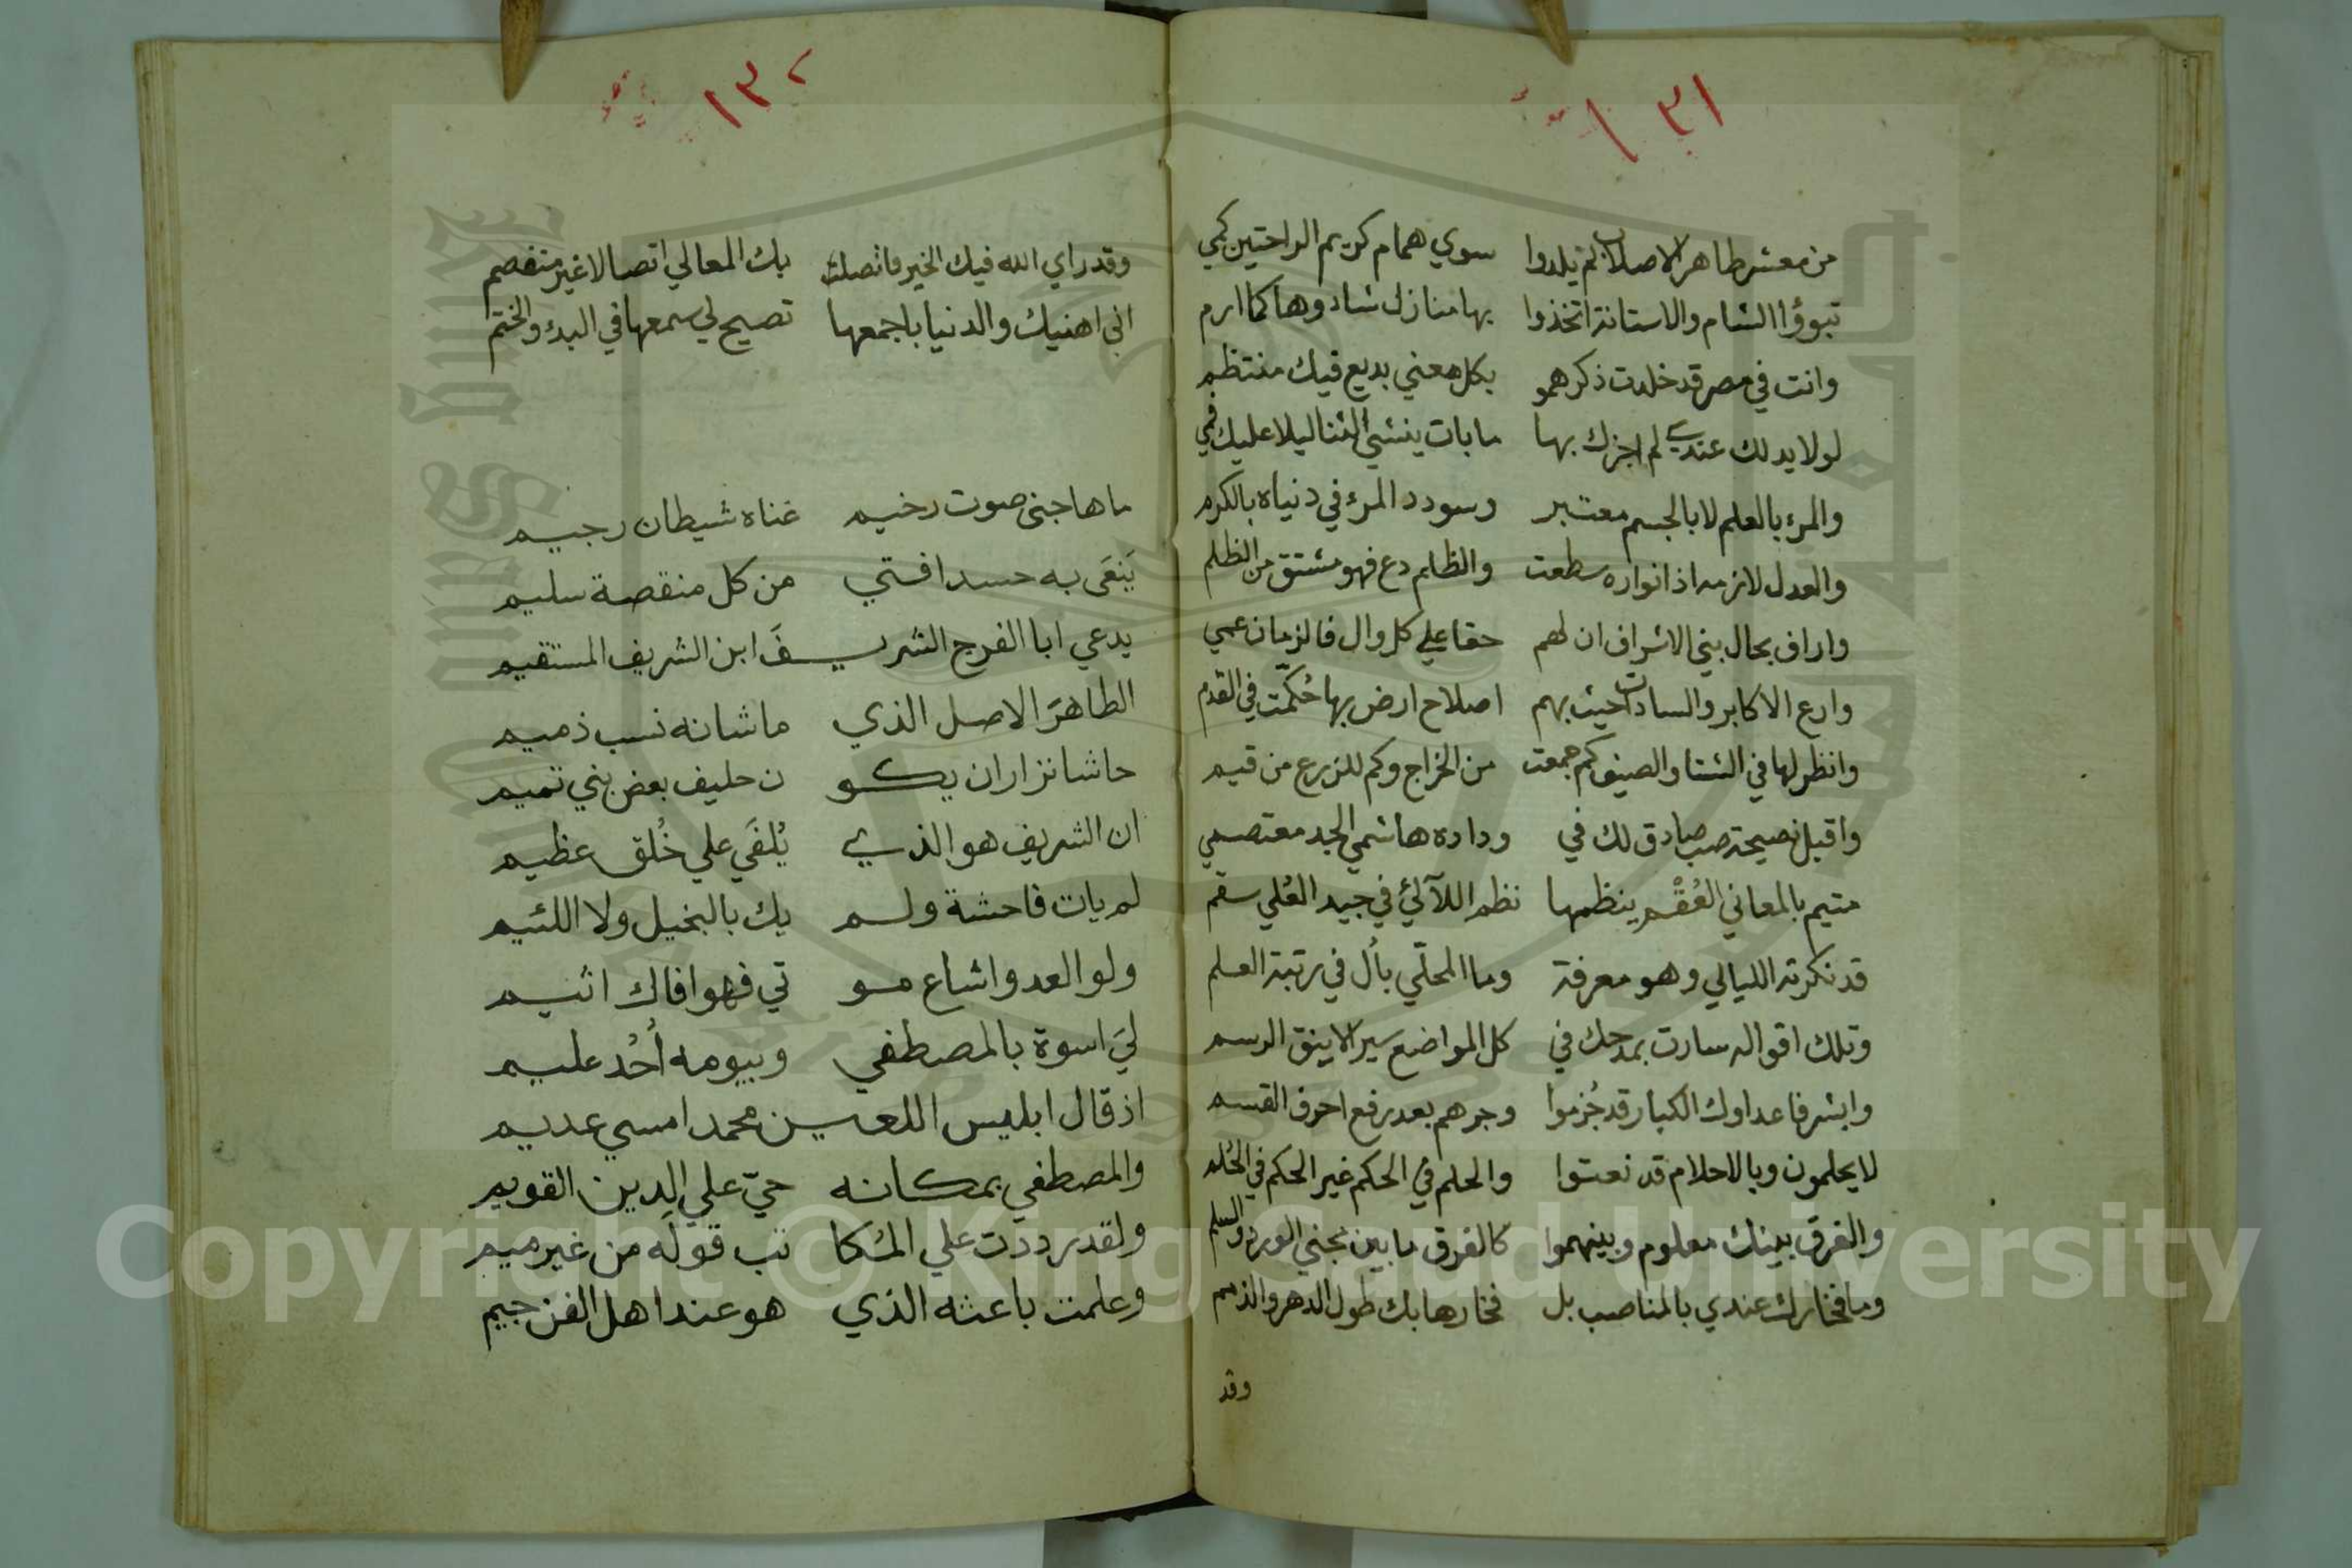 ١٣١
من معشر طاهر الاصلاب لم يلدوا سوي همام كريم الراحتين كمي
تبوؤا الشام والاستانة اتخذوا بها منازل شادوها كما ارم
وانت في مصر قد خلدت ذكرهمو بكل معني بديع فيك منتظم
لولا يد لك عندي لم اجزك بها ما بات ينشي الثنا ليلا عليك فمي
والمرء بالعلم لا بالجسم معتبر وسودد المرء في دنياه بالكرم
والعدل لازمه اذ انواره سطعت والظلم دع فهو مشتق من الظلم
واراف بحال بني الاشراف ان لهم حقا علي كل وال فالزمان عمي
وارع الاكابر والسادات حيث بهم اصلاح ارض بها حُكّمت في القدم
وانظر لها في الشتا والصيف كم جمعت من الخراج وكم للزرع من قيم
واقبل نصيحة صب صادق لك في وداده هاشمي الجد معتصمي
متيم بالمعاني العُقْم ينظمها نظم اللآلئ في جيد العُلي سقم
قد نكرته الليالي وهو معرفة وما المحلّي بأل في رتبة العلم
وتلك اقواله سارت بمدحك في كل المواضع سير الاينق الرسم
وابشر فاعداوك الكبار قد جُزموا وجرهم بعد رفع احرف القسم
لا يحلمون وبالاحلام قد نعتوا والحلم في الحكم غير الحكم في الحُلم
والفرق بينك معلوم وبينهموا كالفرق ما بين مجني الورد والسلم
وما فخارك عندي بالمناصب بل فخارها بك طول الدهر والذمم
وقد
١٣٢
وقد راي الله فيك الخير فاتصلت بك المعالي اتصالا غير منفصم
اني اهنيك والدنيا باجمعها تصيح لي سمعها في البدؤ والختم
ما هاجني صوت رخيم غناه شيطان رجيم
يَنعَى به حسدا فتي من كل منقصة سليم
يدعي ابا الفرج الشريـفَ ابن الشريف المستقيم
الطاهرَ الاصل الذي ما شانه نسب ذميم
حاشا نزار ان يكو ن حليف بعض بني تميم
ان الشريف هو الذي يُلفَي علي خُلق عظيم
لم يات فاحشة ولم يك بالبخيل ولا اللئيم
ولو العدو اشاع مو تي فهو افاك اثيم
ليَ اسوة بالمصطفي وبيومه أُحُد عليم
اذ قال ابليس اللعـين محمد امسي عديم
والمصطفي بمكانه حيّ علي الدين القويم
ولقد رددت علي المُكا تب قولَه من غير ميم
وعلمت باعثه الذي هو عند اهل الفن جيم
Copyright © King Saud University